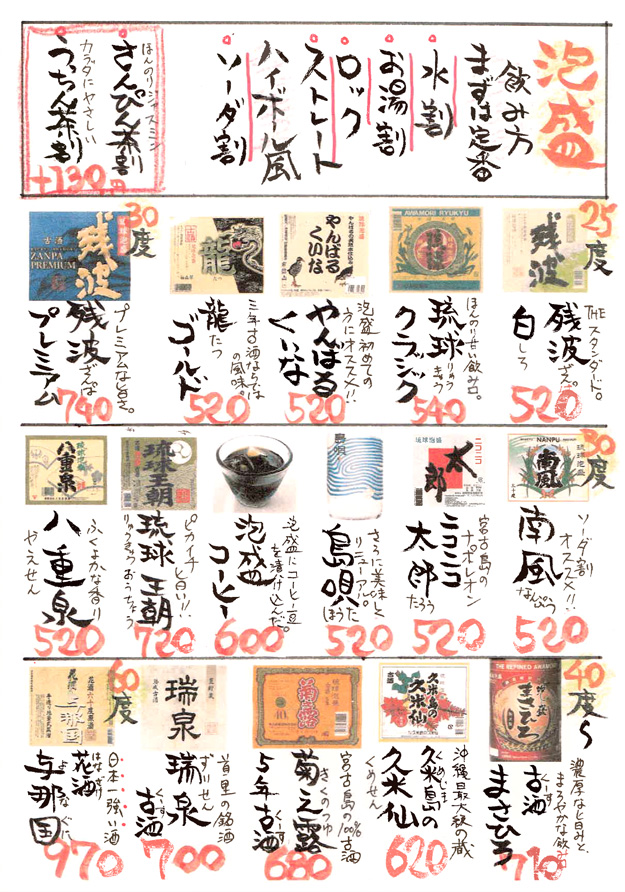 泡盛
飲み方
まずは定番
水割
お湯割
ロック
ストレート
ハイボール風
ソーダ割
ほんのりジャスミン
さんぴん茶割
カラダにやさしい
うっちん茶割
+130円
25度
残波
THEスタンダード。
残波 ざんぱ
白 しろ
520
AWAMORI RYUKYU
ほんのり甘い飲み口。
琉球 りゅうきゅう
クラシック
540
やんばるくいな
泡盛初めての
方にオススメ!!
やんばる
くいな
520
龍
三年古酒ならでは
の風味。
龍 たつ
ゴールド
520
30度
古酒
残波
ZANPA
PREMIUM
プレミアムな旨さ。
残波 ざんぱ
プレミアム
740
30度
NANPU
南風
琉球泡盛
ソーダ割
オススメ!!
南風 なんぷう
520
琉球泡盛
ニコニコ
太郎
宮古島の
ナポレオン
ニコニコ
太郎 たろう
520
島唄
さらに美味しと
リニューアル。
島唄 しまうた
520
泡盛にコーヒー豆
を漬け込んだ。
泡盛
コーヒー
600
琉球王朝
ピカイチ旨い!!
琉球王朝
りゅうきゅうおうちょう
720
八重泉
ふくよかな香り
八重泉
やえせん
520
40度〜
THE REFINED AWAMORI
まさひろ
濃厚な旨みと、
まろやかな飲み口
古酒 くーす
まさひろ
710
古酒
久米島の
久米仙
沖縄最大級の蔵
久米島の くめじま
久米仙
くめせん
620
菊之露
宮古島の100%
古酒
菊之露 きくのつゆ
5年古酒 くーす
680
瑞泉
首里の銘酒
瑞泉 ずいせん
古酒 くーす
700
60度
花酒六十度原酒
与那国
日本一強い酒
花酒 はなざけ
与那国 よなぐに
970